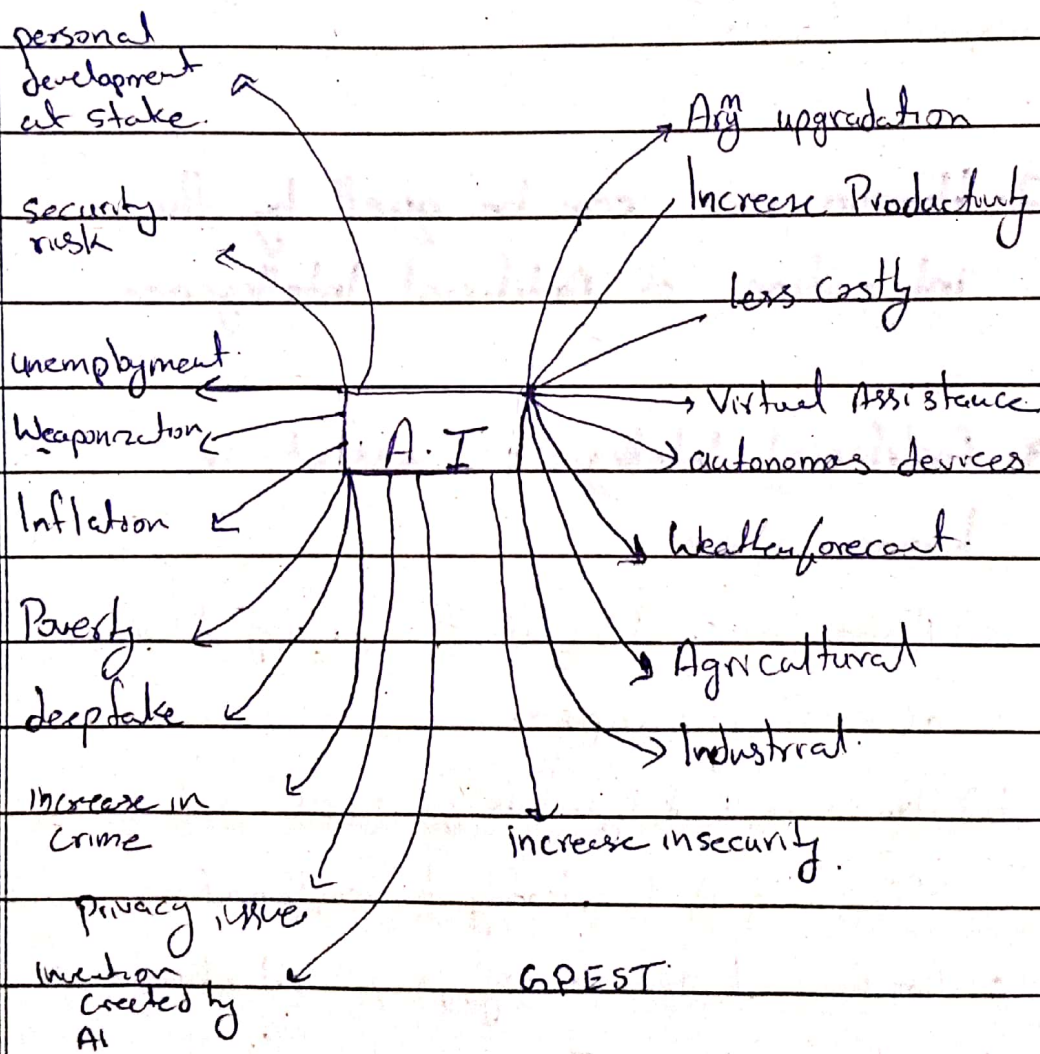 personal
development
at stake.
security
risk
unemployment.
Weaponization
Inflation
Poverty.
deepfake
increase in
crime
Privacy issue
Invention
created by
AI
A.I
Army upgradation
Increase Productivity
less costly
Virtual Assistance
autonomas devices
Weather forecast.
Agricultural
Industrial.
increase insecurity.
GPEST